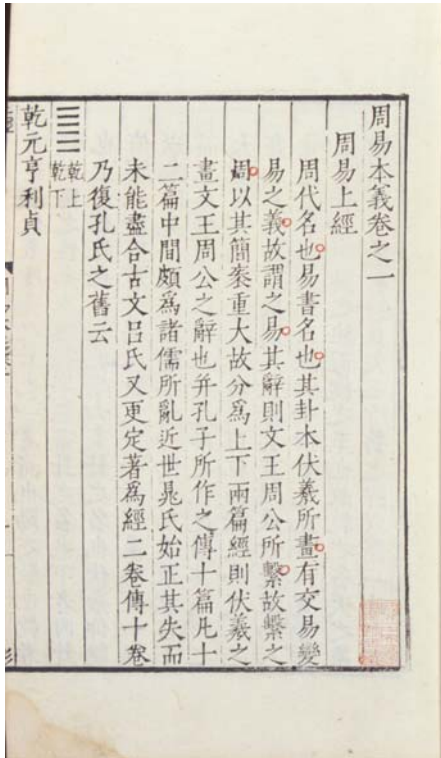 周易本義卷之一
周易上經
周代名也易書名也其卦本伏羲所畫有交易變
易之義故謂之易其辭則文王周公所繫故繫之
周以其簡袠重大故分爲上下兩篇經則伏羲之
畫文王周公之辭也并孔子所作之傳十篇凡十
二篇中間頗爲諸儒所亂近世晁氏始正其失而
未能盡合古文吕氏又更定著爲經二卷傳十卷
乃復孔氏之舊云
乾上
乾下
乾元亨利貞